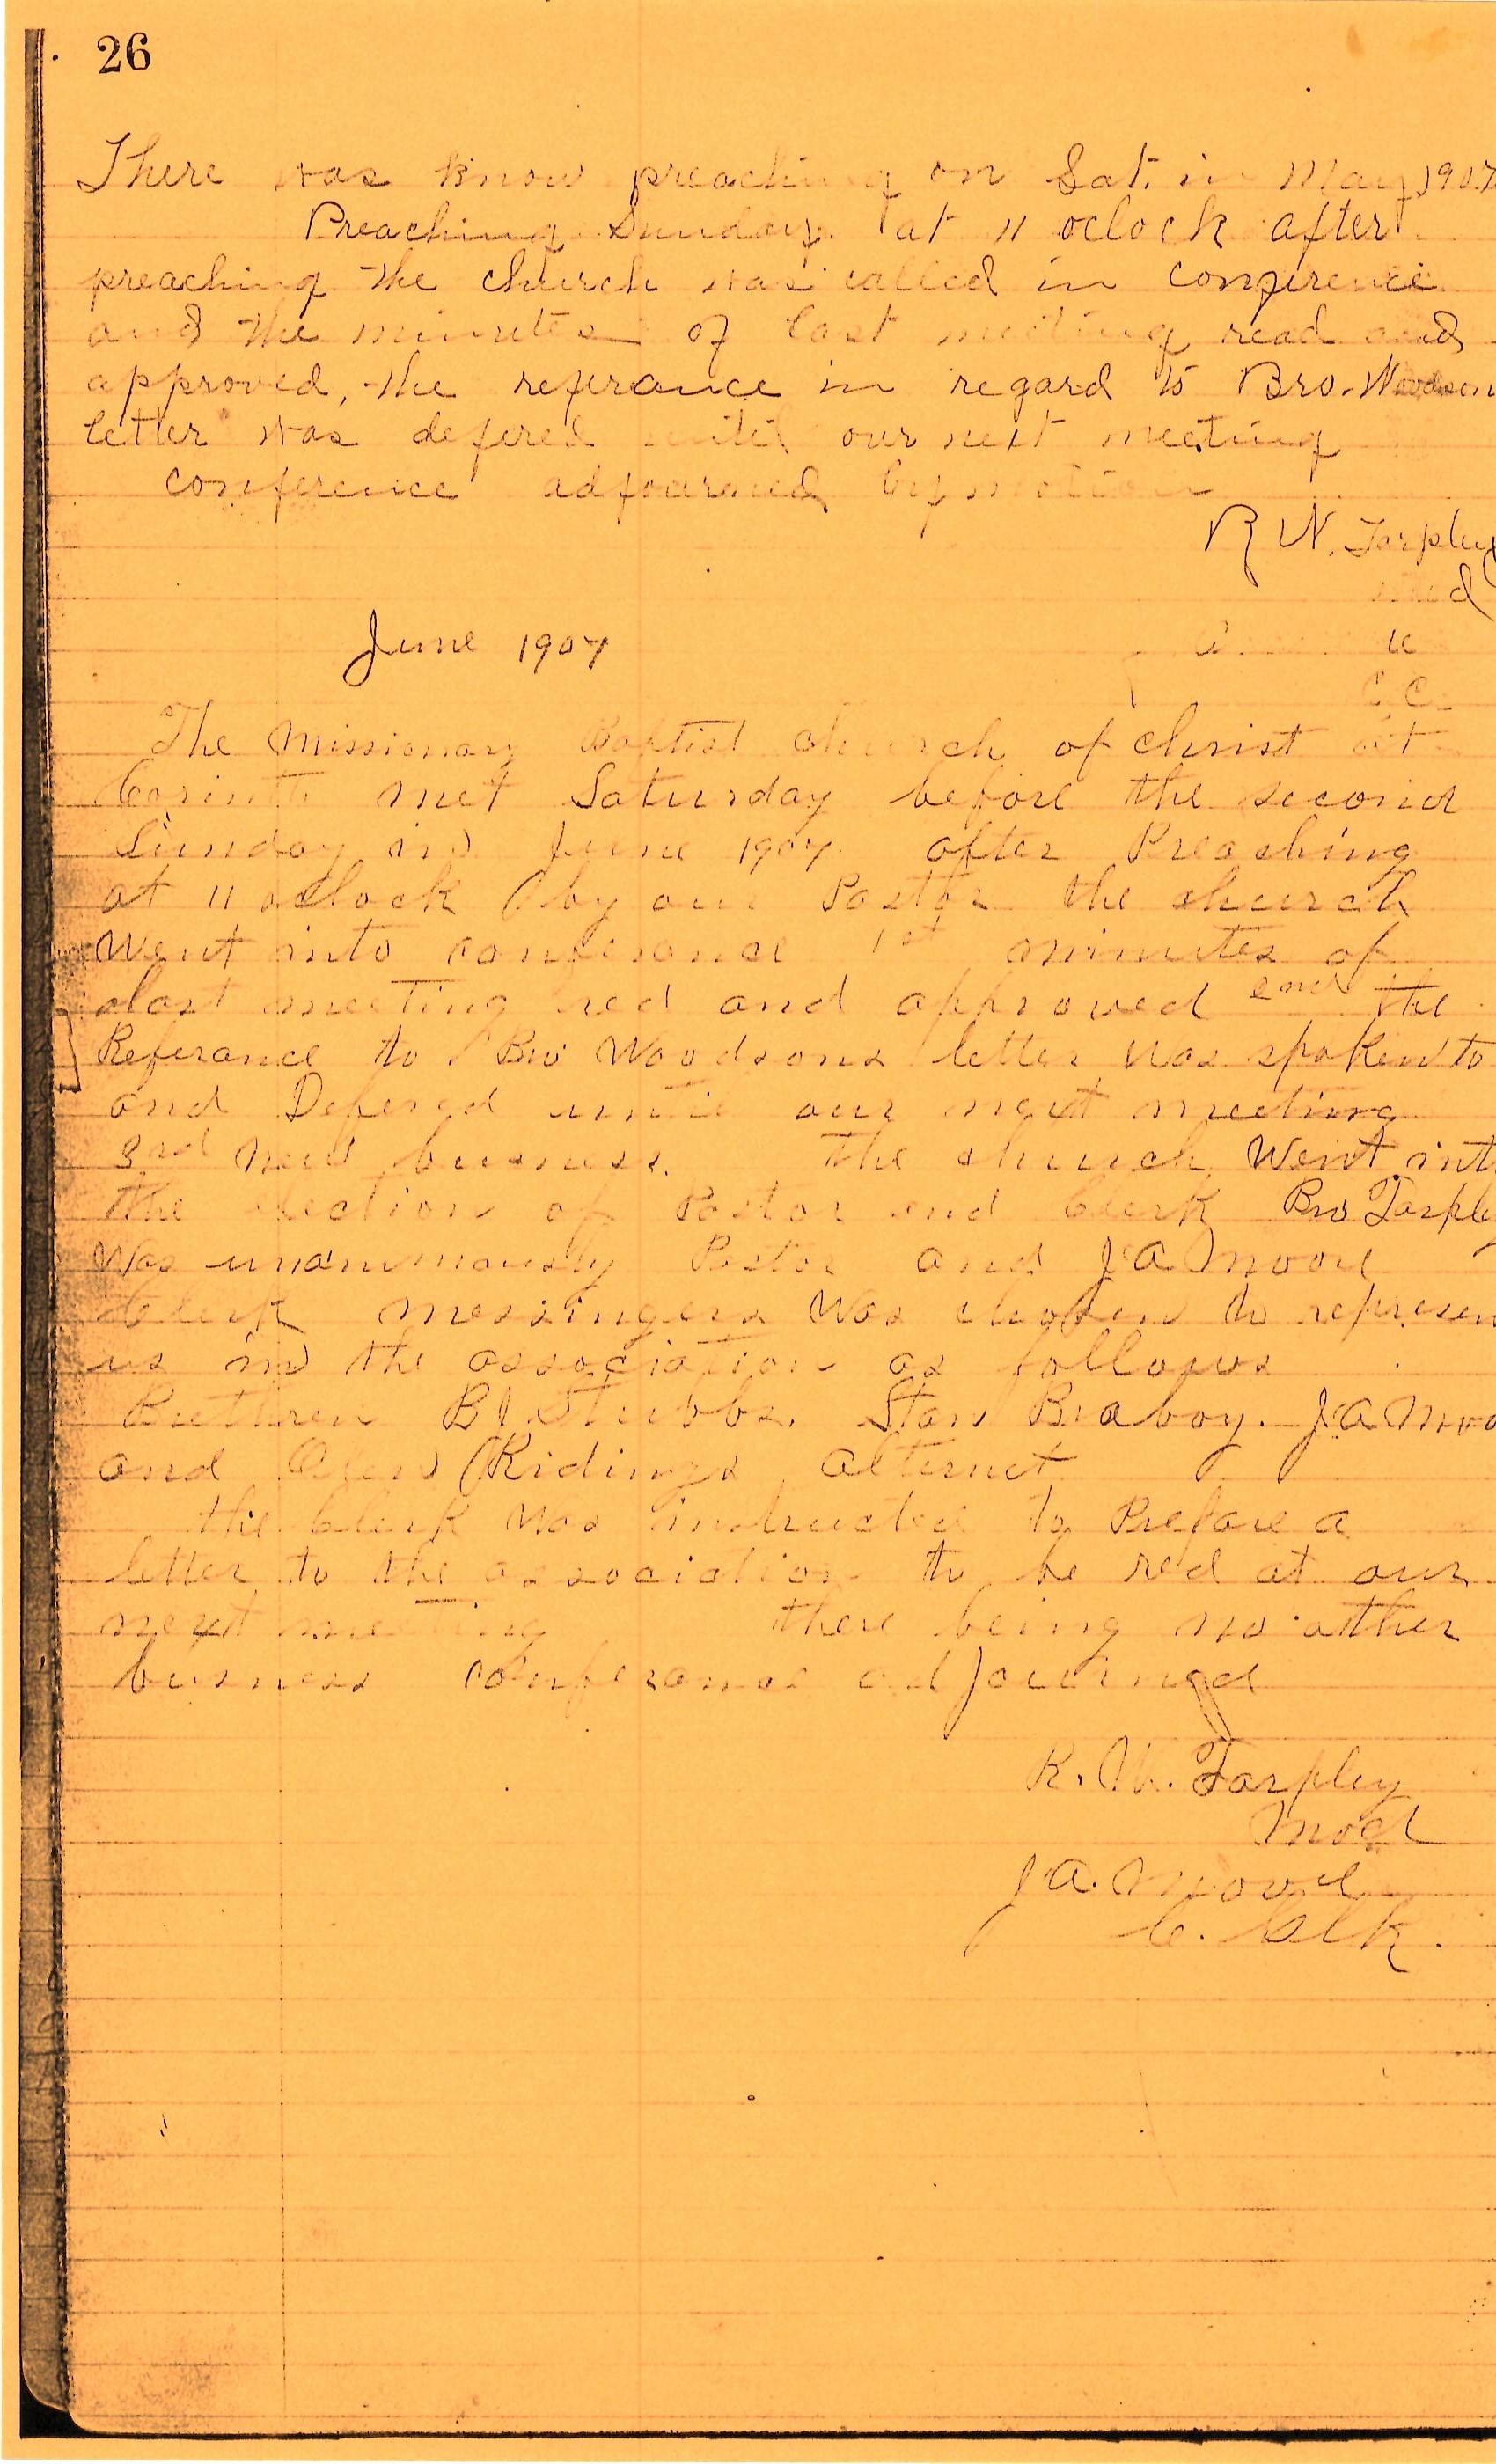 26
There was know preaching on Sat. in May, 1907
Preaching Sunday at 11 oclock after
preaching the church was called in conference
and the minutes of last meeting read and
approved, the referance in regard to Bro. Woodson
letter was defered until our next meeting
conference adjourned by motion
R W. Tarpley
Mod
C. C.
June 1907
The Missionary Baptist church of christ at
Corinth met Saturday before the second
Sunday in June 1907 after Preaching
at 11 oclock by our Pastor the church
went into conferance 1st minutes of
last meeting red and approved 2nd the
Referance to Bro Woodsons letter was spoken to
and Defered until our next meeting
3rd new business. the church went into
the election of Pastor and Clerk Bro Tarpley
was unanimously Pastor and J.A Moore
Clerk messingers was chosen to represen
us in the association as follows
Brethren B J Stubbs. Stan Braboy. J.A Moo
and Ridings alternet
the Clerk was instructed to Prepare a
letter to the association to be red at our
next meeting there being no other
business conferance adjourned
R. W. Tarpley
Mod
J.A. Moore
C. Clk.